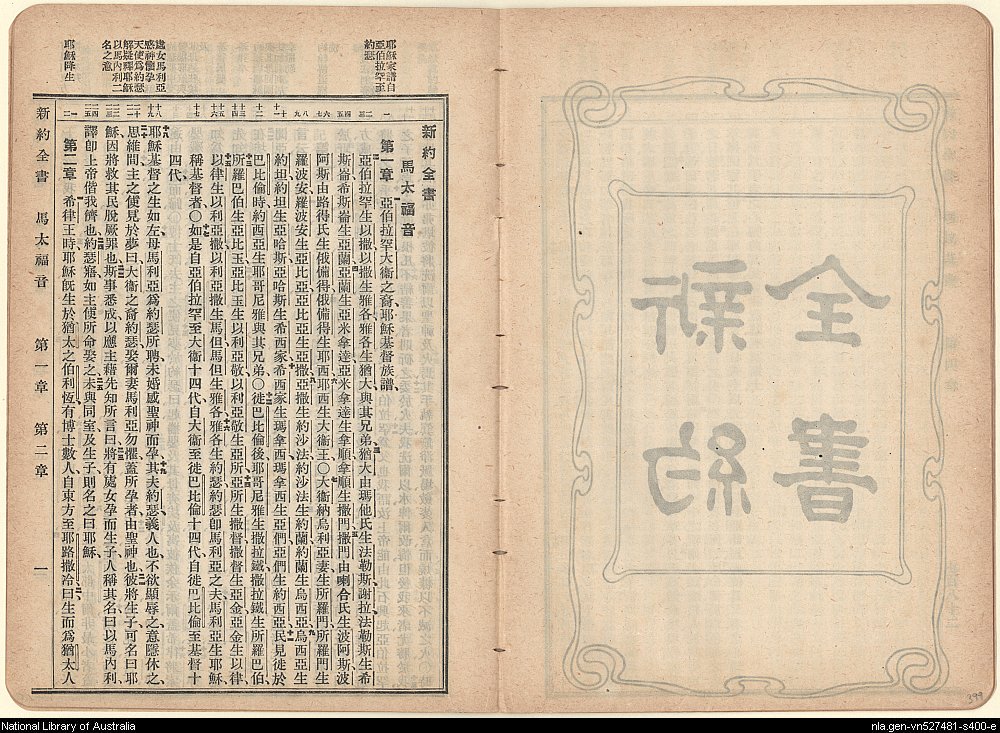 耶穌家譜自
亞伯拉罕至
約瑟
處女馬利亞
感神懷孕
天使爲約瑟
解疑釋耶穌
以馬內利二
名之意
耶穌降生
新約全書
馬太福音
第一章 亞伯拉罕大衛之裔耶穌基督族譜、
亞伯拉罕生以撒以撒生雅各雅各生猶大與其兄弟猶大由瑪他氏生法勒斯謝拉法勒斯生希
斯崙希斯崙生亞蘭亞蘭生亞米拿達亞米拿達生拿順拿順生撒門撒門由喇合氏生波阿斯波
阿斯由路得氏生俄備得俄備得生耶西耶西生大衛王〇大衛納烏利亞妻生所羅門所羅門生
羅波安羅波安生亞比亞亞比亞生亞撒亞撒生約沙法約沙法生約蘭約蘭生烏西亞烏西亞生
約坦約坦生亞哈斯亞哈斯生希西家希西家生瑪拿西瑪拿西生亞們亞們生約西亞民見徙於
巴比倫時約西亞生耶哥尼雅與其兄弟〇徙巴比倫後耶哥尼雅生撒拉鐵撒拉鐵生所羅巴伯
所羅巴伯生亞比玉亞比玉生以利亞敬以利亞敬生亞所亞所生撒督撒督生亞金亞金生以律
以律生以利亞撒以利亞撒生馬但馬但生雅各雅各生約瑟約瑟卽馬利亞之夫馬利亞生耶穌
稱基督者〇如是自亞伯拉罕至大衛十四代自大衛至徙巴比倫十四代自徙巴比倫至基督十
四代、
耶穌基督之生如左母馬利亞爲約瑟所聘未婚感聖神而孕其夫約瑟義人也不欲顯辱之意隱休之、
思維間主之使見於夢曰大衛之裔約瑟娶爾妻馬利亞勿懼蓋所孕者由聖神也彼將生子可名曰耶
穌因將救其民脫厥罪也斯事悉成以應主藉先知所言曰將有處女孕而生子人稱其名曰以馬內利
譯卽上帝偕我儕也約瑟寤如主使所命娶之未與同室及生子則名之曰耶穌、
第二章 希律王時耶穌旣生於猶太之伯利恆有博士數人自東方至耶路撒冷曰生而爲猶太人
新約全書 馬太福音 第一章 第二章 一
新約
全書
399
National Library of Australia
nla.gen-vn527481-s400-e